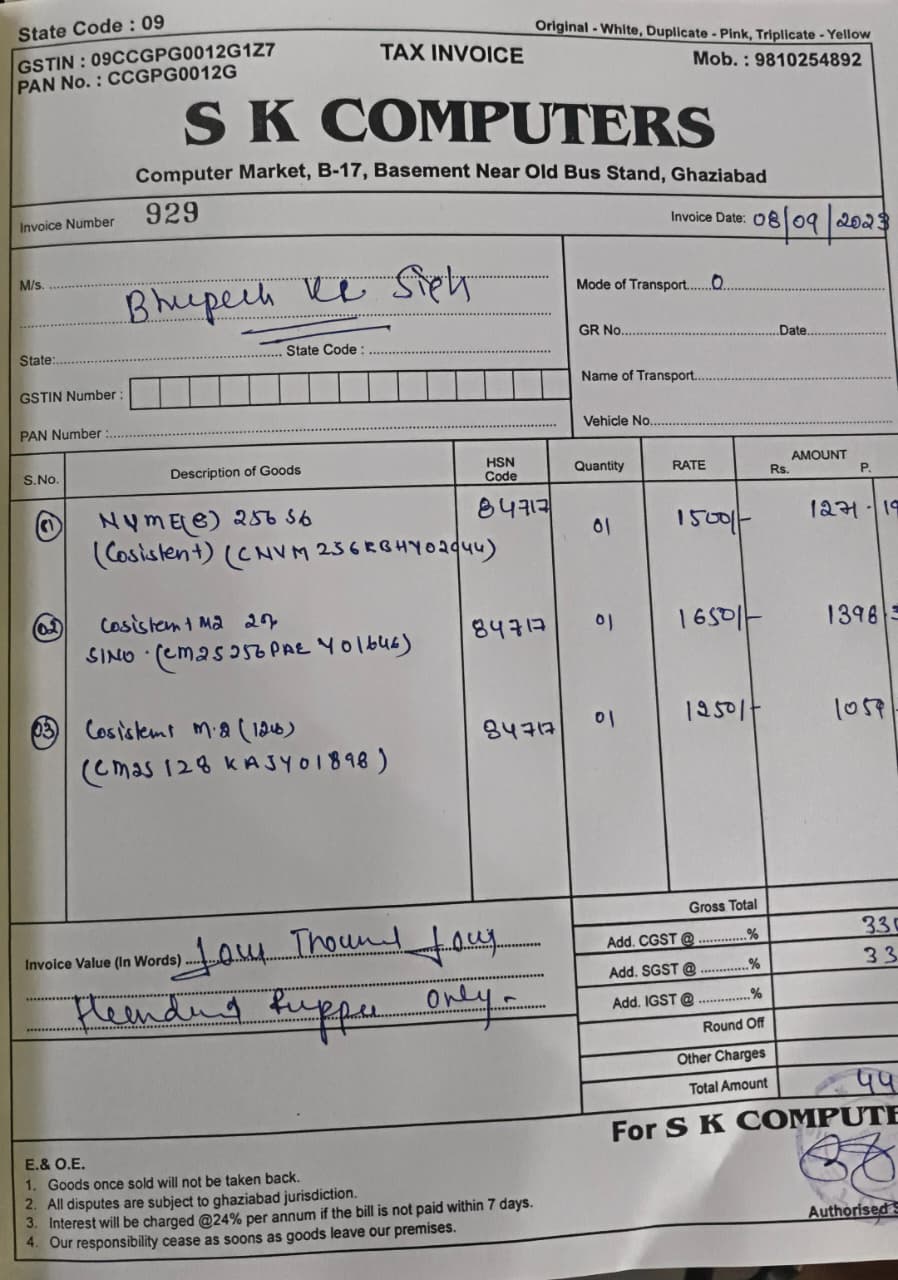 State Code : 09
Original - White, Duplicate - Pink, Triplicate - Yellow
GSTIN : 09CCGPG0012G1Z7
TAX INVOICE
Mob. : 9810254892
PAN No. : CCGPG0012G
S K COMPUTERS
Computer Market, B-17, Basement Near Old Bus Stand, Ghaziabad
Invoice Number 929
Invoice Date: 08/09/2023
M/s. Bhupech Kr
Mode of Transport......0
GR No. Date
State: State Code :
Name of Transport
GSTIN Number :
Vehicle No.
PAN Number :
S.No. Description of Goods HSN Code Quantity RATE AMOUNT Rs. P.
01 256 84717 01 1500/- 1271 - 19
(Cosistent) (CNVM256RBHY02944)
02 Cosistent M2 84717 01 1650/- 1398
SINO. (CM2S256PAE Y01646)
03 Cosistent M.2 (128) 84717 01 1250/- 1059
(CM2S 128 KAJY01898)
Gross Total
Invoice Value (In Words) Four Thousand Four
Add. CGST @ ............% 
Add. SGST @ ............% 
Hundred Ruppee Only -
Add. IGST @ ............%
Round Off
Other Charges
Total Amount 44
For S K COMPUTE
E.& O.E.
1. Goods once sold will not be taken back.
2. All disputes are subject to ghaziabad jurisdiction.
3. Interest will be charged @24% per annum if the bill is not paid within 7 days.
4. Our responsibility cease as soons as goods leave our premises.
Authorised S